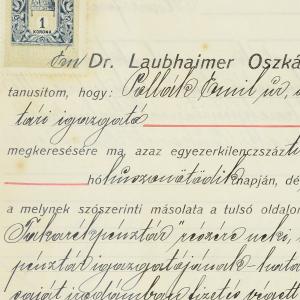 1
KORONA
Én Dr. Laubhaimer Oszká
tanusitom, hogy: Pollák Emil úr, a
tári igazgató
megkeresésére ma, azaz egyezerkilenczszázti
hó huszonötödik napján, dé
a melynek szószerinti másolata a tulsó oldalon
Takarékpénztár részére neki,
pénztár igazgatójának-hata
saját irodámban fizetés végett